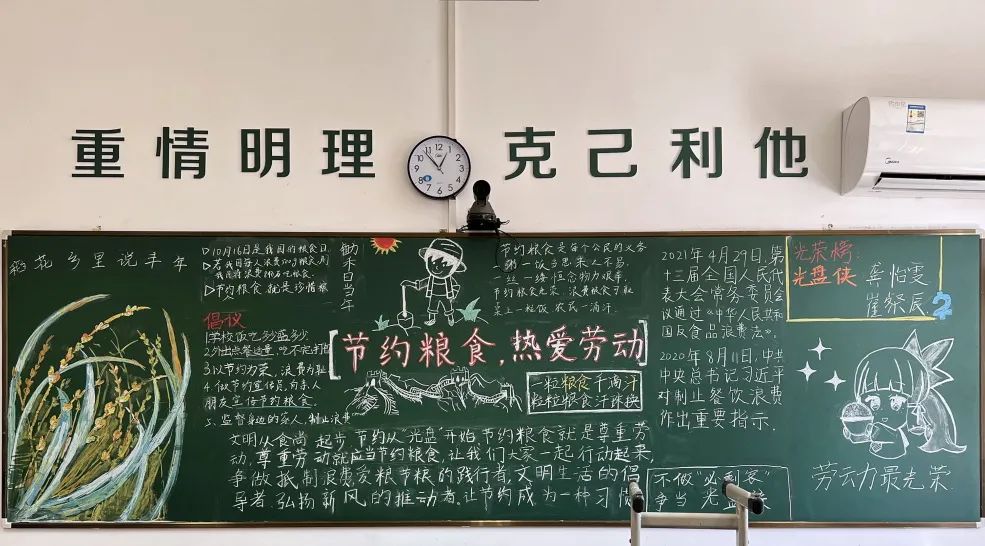 重情明理
克己利他
稻花乡里说丰年
▷10月16日是我国的粮食日
▷节约粮食就是珍惜粮
锄禾日当午
倡议
1学校饭吃多少盛多少
2.外出点餐适量,吃不完打包
3.以节约为荣,浪费为耻
4.做节约宣传员,向亲人
朋友宣传节约粮食
5、监督身边的亲人,制止浪费
节约粮食是每个公民的义务
一粥一饭当思来之不易
一丝一缕恒念物力维艰
节约粮食光荣 浪费粮食可耻
桌上一粒饭 农民一滴汗
[节约粮食,热爱劳动]
一粒粮食千滴汗
粒粒粮食汗珠换
文明从食尚起步,节约从光盘开始,节约粮食就是尊重劳
动,尊重劳动就应当节约粮食,让我们大家一起行动起来,
争做抵制浪费爱粮节粮的践行者,文明生活的倡
导者,弘扬新风的推动者,让节约成为一种习惯
2021年4月29日,第
十三届全国人民代
表大会常务委员会
议通过《中华人民共和
国反食品浪费法》.
2020年8月11日,中共
中央总书记习近平
对制止餐饮浪费
作出重要指示.
光荣榜:
光盘侠
龚怡雯
崔粲辰
劳动力最光荣
不做“必剩客”
争当
Midea